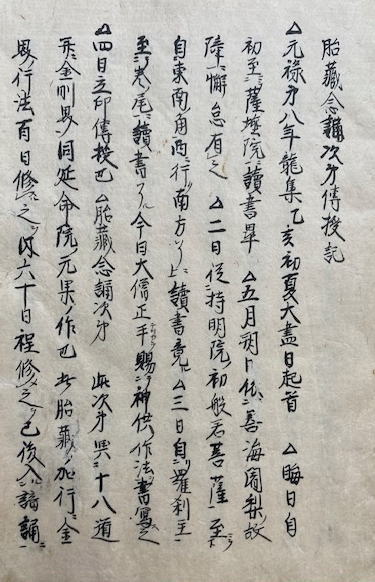 胎藏念誦次第傳授記
△元禄第八年龍集乙亥初夏大盡日起首　△晦日自
初至薩埵院讀書畢　△五月朔日依善海闍梨故
障懈怠有之　△二日從持明院初般若菩薩至
自東南角西行南方了上讀書竟　△三日自羅刹主
至卷尾讀書了今日大僧正手賜神供作法書寫之
△四日立印傳授也　△胎藏念誦次第　此次第與十八道
并金剛界同延命院元杲作也　此胎藏加行金
界行法百日修之後六十日程修之已後入諳誦